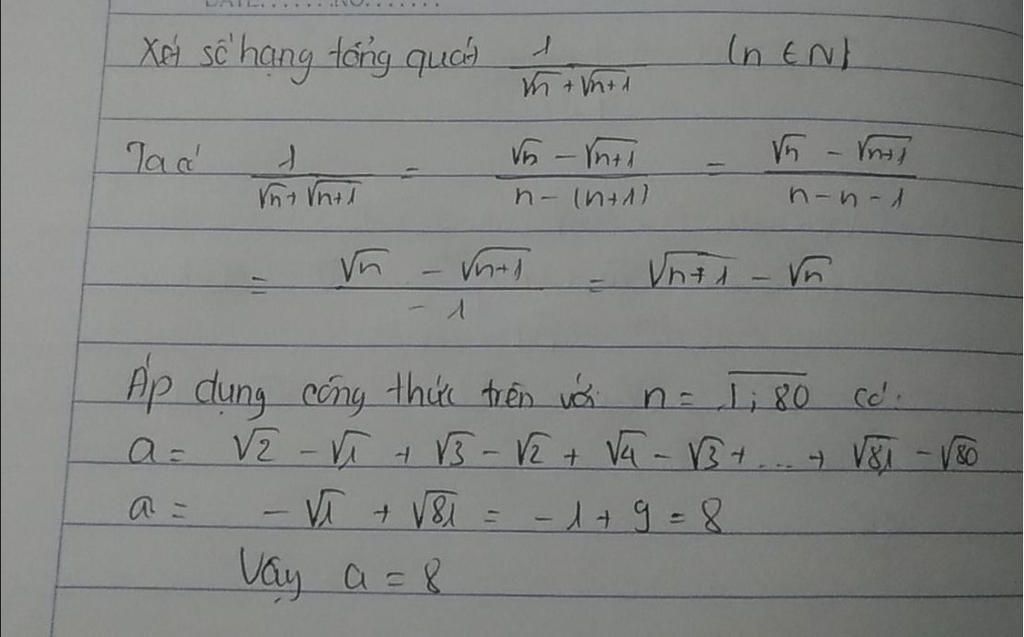 DATE.......NO.......
Xét số hạng tổng quát 1/(√n + √n+1) (n ∈ N)
Ta có 1/(√n + √n+1) = (√n − √n+1)/(n − (n+1)) = (√n − √n+1)/(n − n − 1)
= (√n − √n+1)/(−1) = √n+1 − √n
Áp dụng công thức trên với n = 1;80 có:
a = √2 − √1 + √3 − √2 + √4 − √3 + ... + √81 − √80
a = −√1 + √81 = −1 + 9 = 8
Vậy a = 8